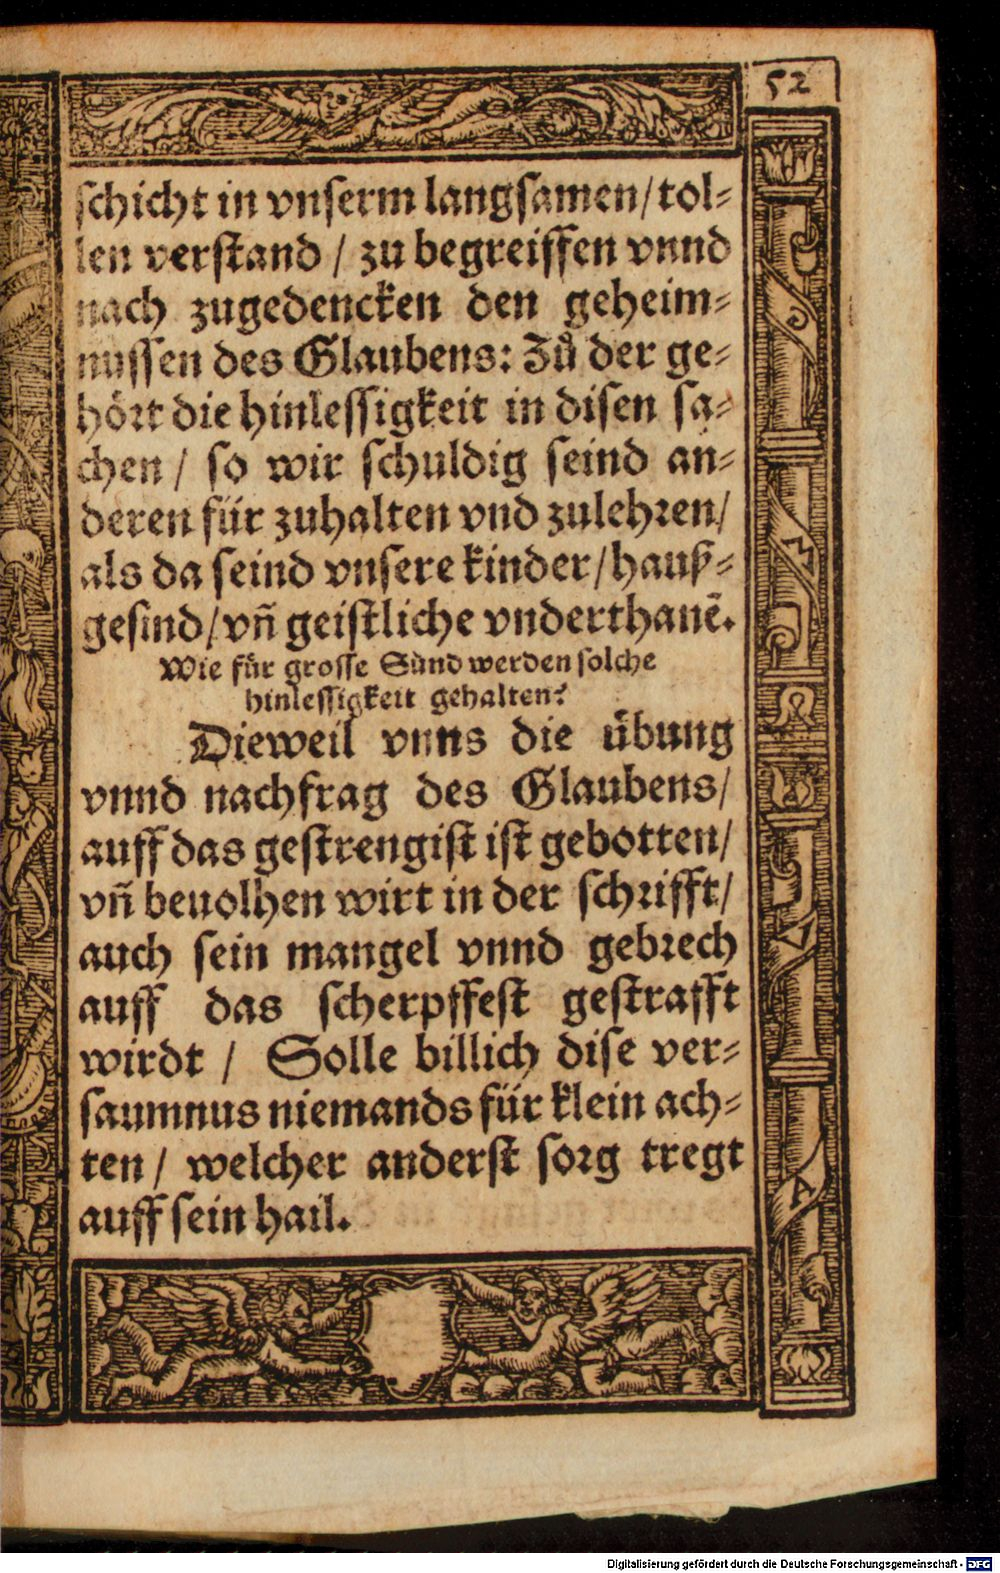 52
schicht in vnserm langsamen/ tol-
len verstand / zu begreiffen vnnd
nach zugedencken den geheim-
nussen des Glaubens: Zů der ge-
hört die hinlessigkeit in disen sa-
chen / so wir schuldig seind an-
deren für zuhalten vnd zulehren/
als da seind vnsere kinder/ hauß-
gesind/ vñ geistliche vnderthanē.
Wie für grosse Sünd werden solche
hinlessigkeit gehalten?
Dieweil vnns die übung
vnnd nachfrag des Glaubens/
auff das gestrengist ist gebotten/
vñ beuolhen wirt in der schrifft/
auch sein mangel vnnd gebrech
auff das scherpffest gestrafft
wirdt / Solle billich dise ver-
saumnus niemands für klein ach-
ten / welcher anderst sorg tregt
auff sein hail.
Digitalisierung gefördert durch die Deutsche Forschungsgemeinschaft - DFG